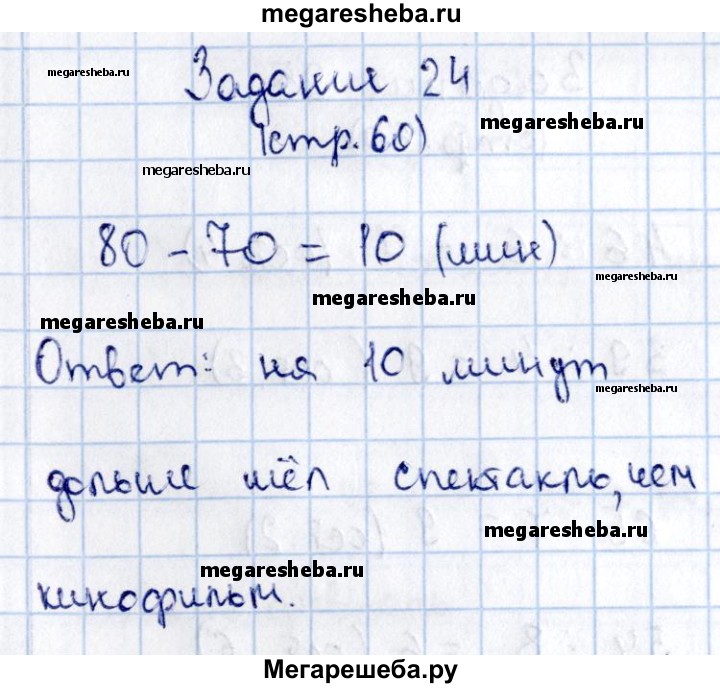 megaresheba.ru
megaresheba.ru
Задание 24
megaresheba.ru
(стр. 60)
megaresheba.ru
80 - 70 = 10 (мин)
megaresheba.ru
megaresheba.ru
megaresheba.ru
Ответ: на 10 минут
megaresheba.ru
дольше шёл спектакль, чем
megaresheba.ru
megaresheba.ru
кинофильм.
Мегарешеба.ру